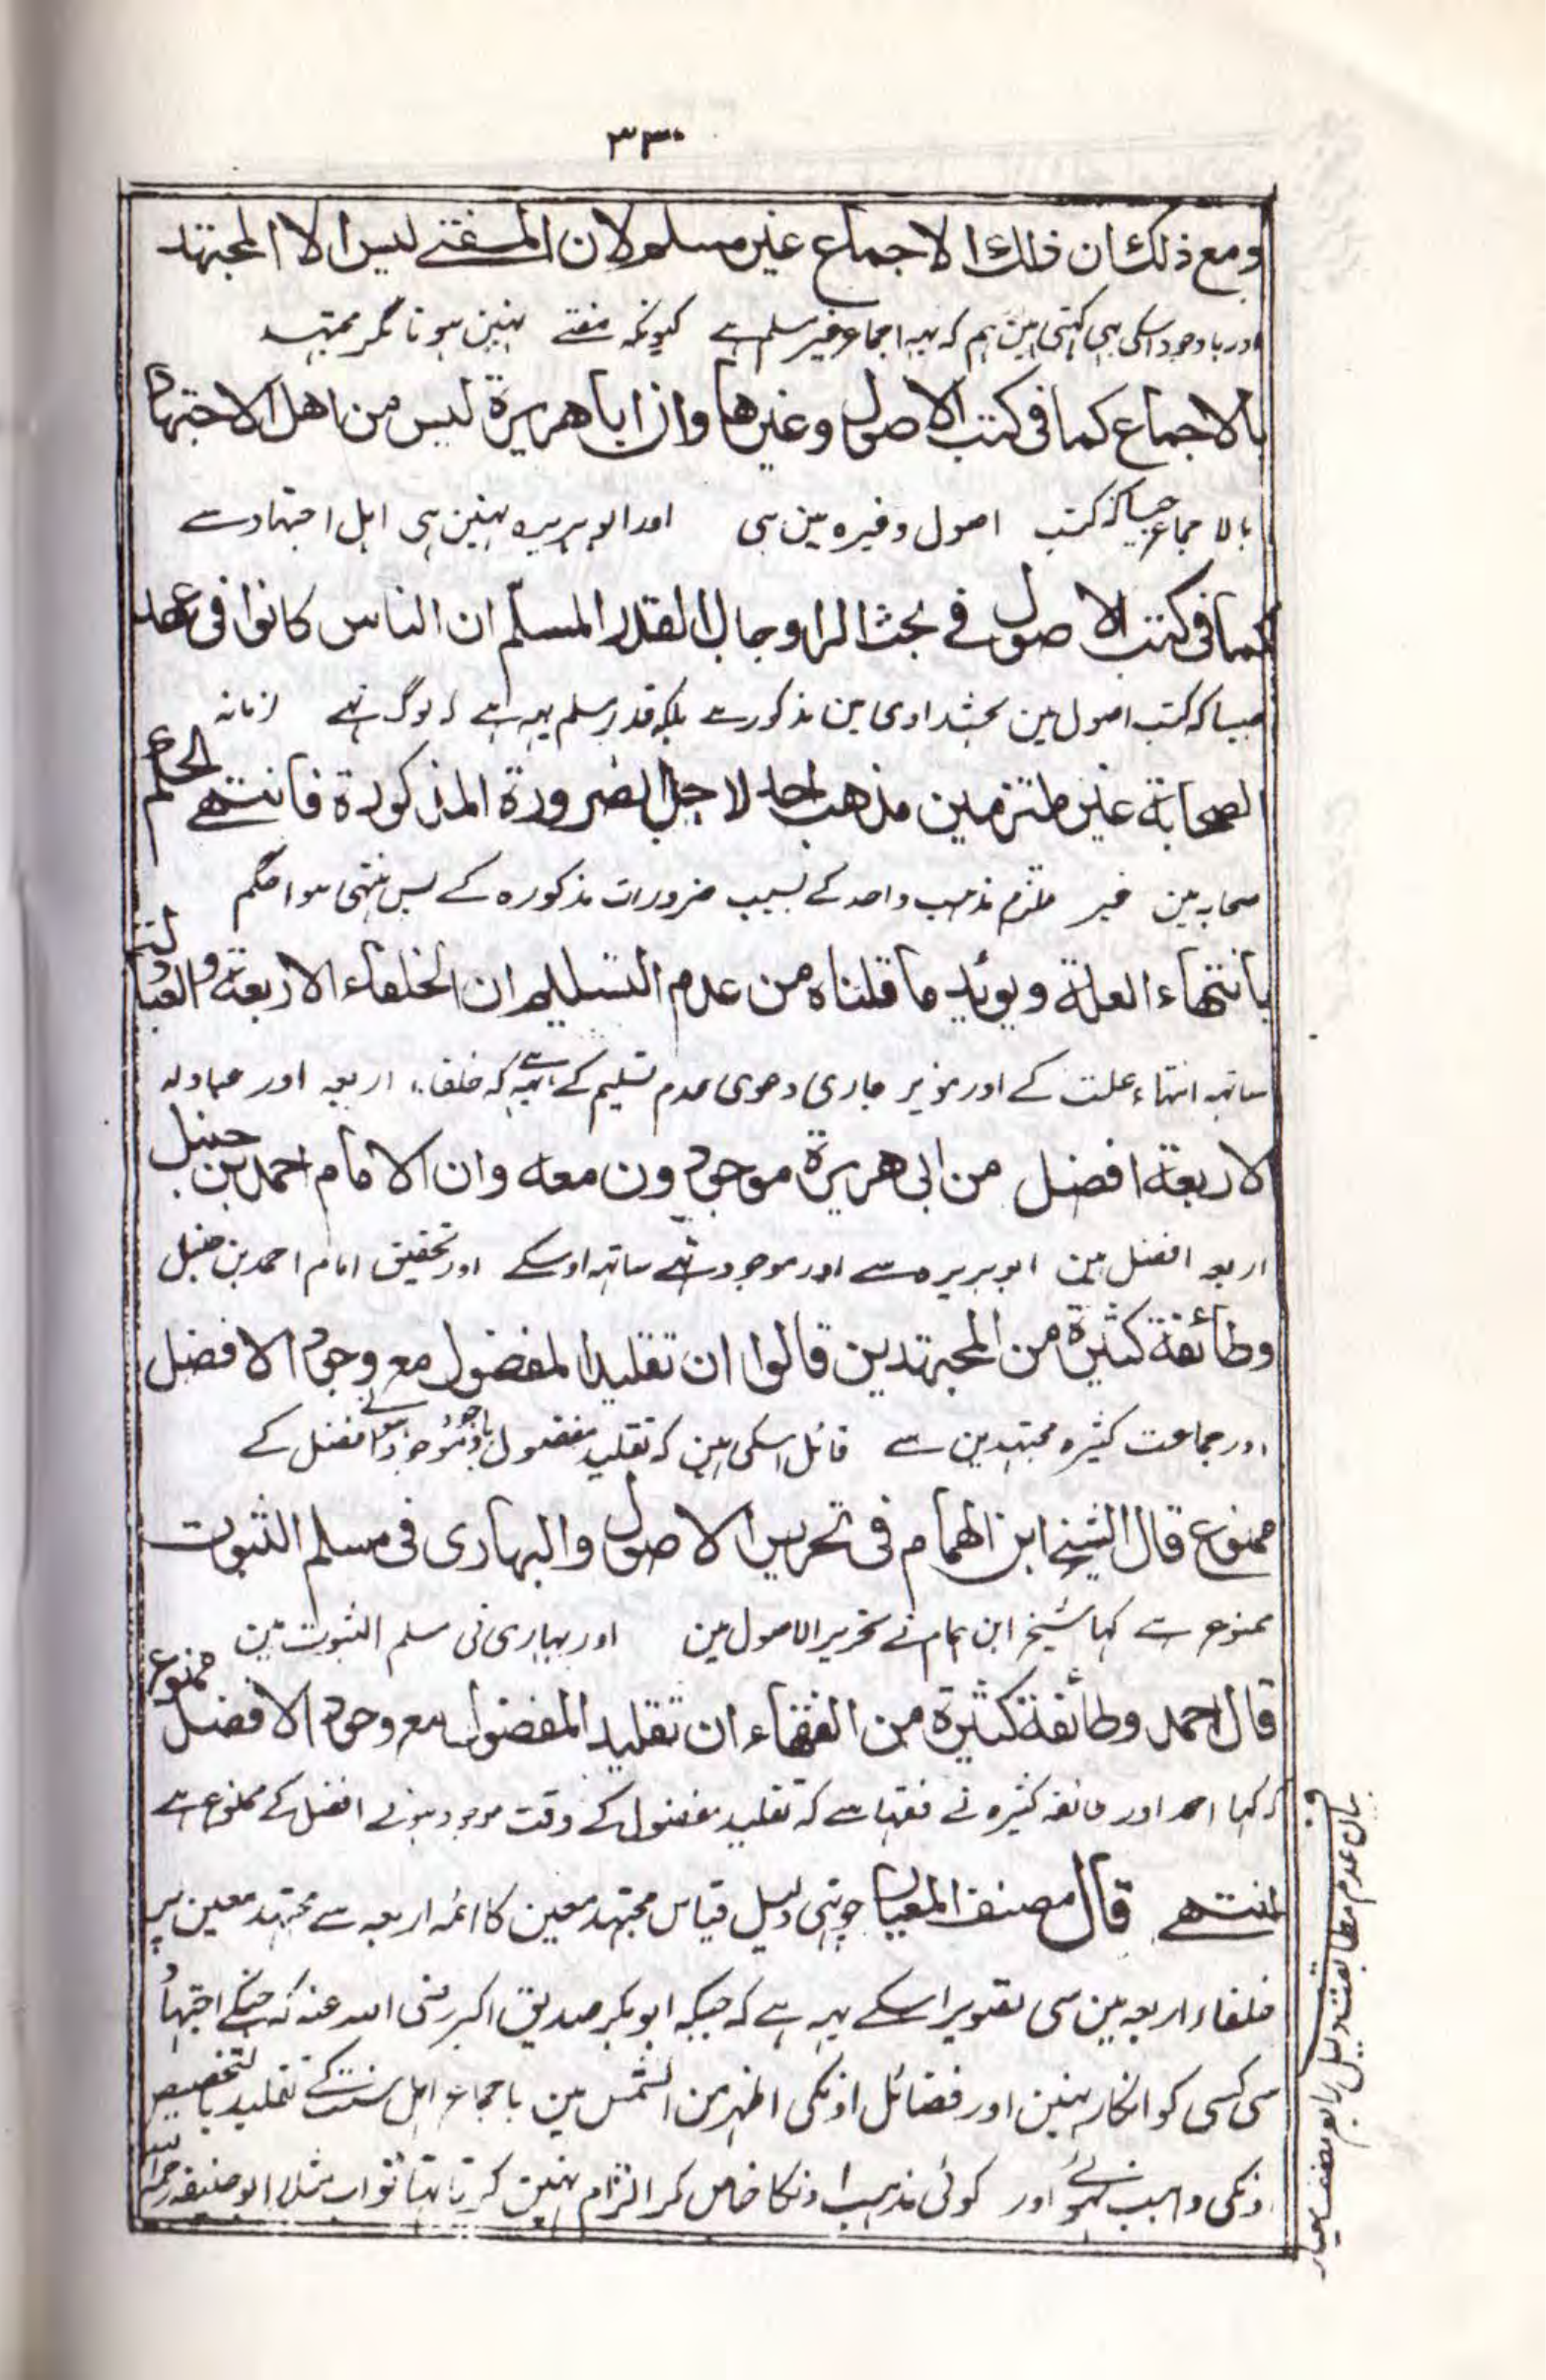 ٣٣٠
ومع ذلك ان ذلك الاجماع غير مسلم لان المفتے ليس الا المجتهد
اور باوجود اسکی بہی کہتی ہین ہم کہ یہہ اجماع غیر مسلم ہے کیونکہ مفتے نہین ہوتا مگر مجتہد
بالاجماع كما فى كتب الاصول وغيرها وان ابا هريرة ليس من اهل الاجتهاد
بالاجماع جیسا کہ کتب اصول وغیرہ مین ہی اور ابو ہریرہ نہین ہی اہل اجتہاد سے
كما فى كتب الاصول فے بحث الراوى بل القدر المسلّم ان الناس كانوا فى عهد
جیسا کہ کتب اصول مین بحث راوی مین مذکور ہے بلکہ قدر مسلم یہہ ہے کہ لوگ تہے زمانہ
الصحابة غير ملتزمين مذهب احد لاجل الضرورة المذكورة فانتهے الحكم
صحابہ مین غیر ملتزم مذہب واحد کے بسبب ضرورات مذکورہ کے پس منتہی ہوا حکم
بانتهاء العلة ويويد ما قلناه من عدم التسليم ان الخلفاء الاربعة و العبادلة
ساتہہ انتہاء علت کے اور مؤید ہماری دعوی عدم تسلیم کے یہہ ہے کہ خلفاء اربعہ اور عبادلہ
الاربعة افضل من ابى هريرة موجودون معه وان الامام احمد بن حنبل
اربعہ افضل ہین ابو ہریرہ سے اور موجود تہے ساتہہ اوسکے اور تحقیق امام احمد بن حنبل
وطائفة كثيرة من المجتهدين قالوا ان تقليد المفضول مع وجود الافضل
اور جماعت کثیرہ مجتہدین سے قائل اسکی ہین کہ تقلید مفضول باوجود موجود افضل کے
ممنوع قال الشيخ ابن الهمام فى تحرير الاصول والبهارى فى مسلم الثبوت
ممنوع ہے کہا شیخ ابن ہمام نے تحریر الاصول مین اور بہاری نی مسلم الثبوت مین
قال احمد وطائفة كثيرة من الفقهاء ان تقليد المفضول مع وجود الافضل ممنوع
کہ کہا احمد اور طائفہ کثیرہ نے فقہا سے کہ تقلید مفضول کے وقت موجود ہونے افضل کے ممنوع ہے
انتهے قال مصنف المعيار چوتہی دلیل قیاس مجتہد معین کا ائمہ اربعہ سے مجتہد معین پر
خلفاء اربعہ مین سی تقریر اسکے یہہ ہے کہ جبکہ ابو بکر صدیق اکبر رضی اللہ عنہ کہ جنکے اجتہاد
سی کسی کو انکار نہین اور فضائل اونکی اظہر من الشمس ہین باجماع اہل سنت کے تقلید بالتخصیص
اونکی واجب نہوئے اور کوئی مذہب اونکا خاص کر التزام نہین کرتا تہا تو اب مثل ابو حنیفہ رحمہ اللہ
بیان عدم مطابقت دلیل رابع مصنف معیار